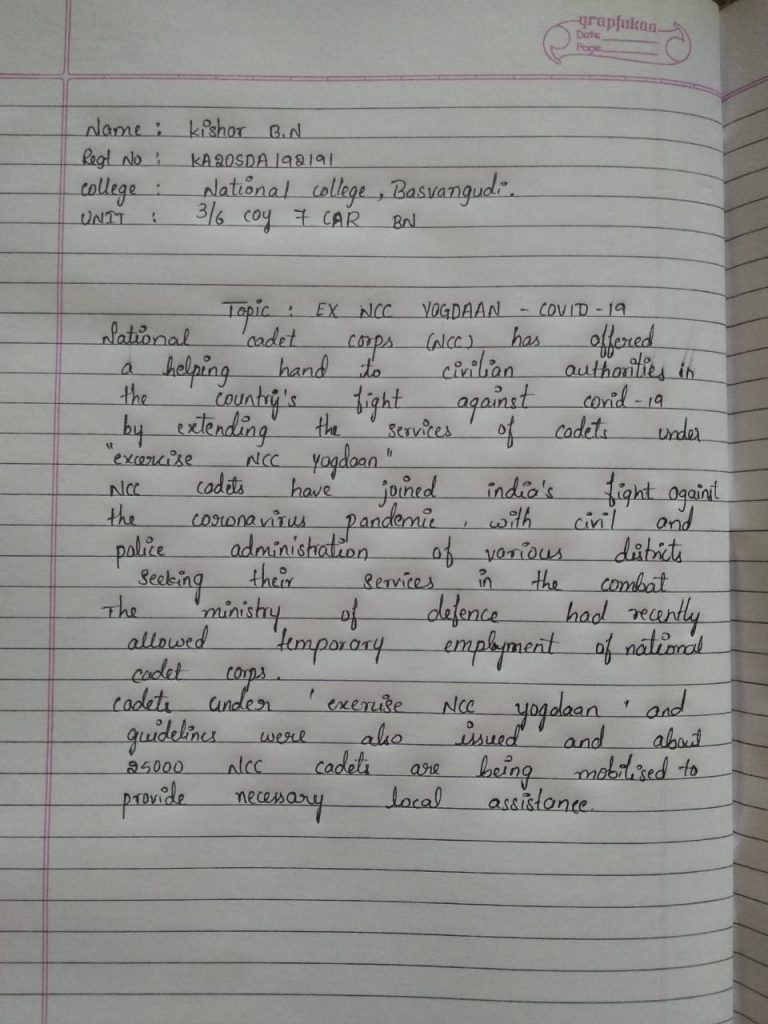 grapfukaa
Date
Page
Name : kishor B.N
Regt No : KA20SDA192191
college : National college, Basvangudi.
UNIT : 3/6 coy 7 CAR BN
Topic : EX NCC YOGDAAN - COVID - 19
National cadet corps (NCC) has offered
a helping hand to civilian authorities in
the country's fight against covid - 19
by extending the services of cadets under
"excercise NCC yogdaan"
NCC cadets have joined india's fight against
the coronavirus pandemic, with civil and
police administration of various districts
seeking their services in the combat
The ministry of defence had recently
allowed temporary employment of national
cadet corps.
cadets under 'exercise NCC yogdaan' and
guidelines were also issued and about
25000 NCC cadets are being mobilised to
provide necessary local assistance.